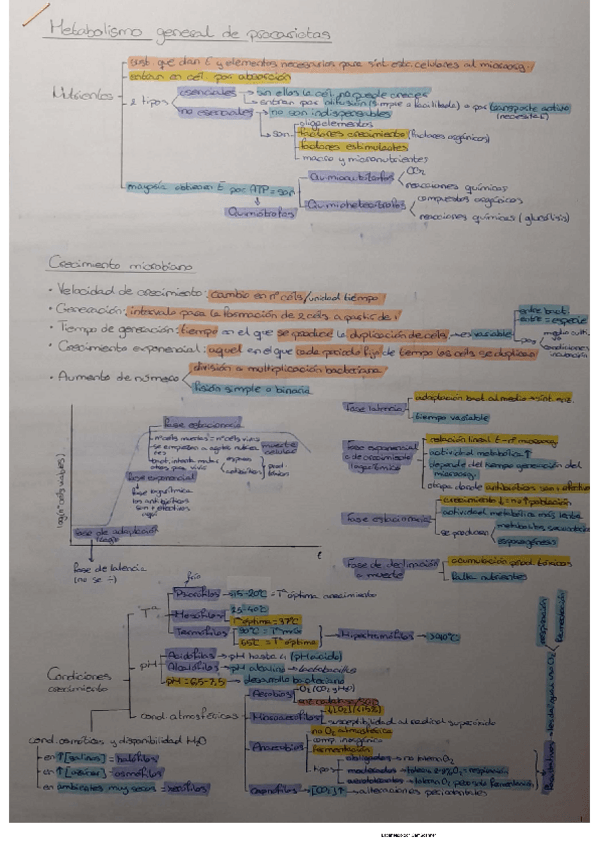 Metabolismo general de procariotas
sust. que dan E y elementos necesarios para sint. estr. celulares al microorg.
entran en cél. por absorción
Nutrientes
2 tipos
esenciales → sin ellos la cél. no puede crecer
entran por difusión (simple o facilitada) o por transporte activo
(necesita E)
no esenciales → no son indispensables
son
oligoelementos
factores crecimiento (factores orgánicos)
factores estimulantes
macro y micronutrientes
mayoría obtienen E por ATP = son
Quimiótrofos
Quimioautótrofos
CO₂
reacciones químicas
Quimioheterótrofos
compuestos orgánicos
reacciones químicas (glucólisis)
Crecimiento microbiano
• Velocidad de crecimiento: cambio en nº céls/unidad tiempo
• Generación: intervalo para la formación de 2 céls a partir de 1
• Tiempo de generación: tiempo en el que se produce la duplicación de céls → es variable
entre bact.
entre = especie
por
medio cultivo
condiciones incubación
• Crecimiento exponencial: aquel en el que cada periodo fijo de tiempo las céls se duplican
• Aumento de número
división o multiplicación bacteriana
fisión simple o binaria
log(nº céls viables)
fase estacionaria
nº céls muertas = nº céls vivas
se empiezan a agotar nutrientes
muerte celular
fase exponencial
fase logarítmica
los antibióticos son + efectivos aquí
fase de adaptación
t
fase de latencia
(no se ÷)
Fase latencia
adaptación bact. al medio → sint. enz.
tiempo variable
Fase exponencial o de crecimiento logarítmico
relación lineal t - nº microorg.
actividad metabólica ↑
depende del tiempo generación del microorg.
etapa donde antibióticos son + efectivos
Fase estacionaria
actividad metabólica más lenta
se producen
metabolitos secundarios
esporogénesis
Fase de declinación o muerte
acumulación prod. tóxicos
falta nutrientes
Condiciones crecimiento
Tª
frío
Psicrófilos → 15-20ºC = Tª óptima crecimiento
Mesófilos
25-40ºC
Tª óptima = 37ºC
Termófilos
Tª mín
Tª óptima
Hipertermófilos
pH
Acidófilos → pH hasta 4 (pH ácido)
Alcalófilos → pH alcalino
pH = 6,5-7,5 → desarrollo bacteriano
cond. atmosféricas
Aerobios
O₂ (CO₂ y H₂O)
Microaerófilos
susceptibilidad al radical superóxido
Anaerobios
no O₂ atmosférico
comp. inorgánica
fermentación
tipos
obligados → no toleran O₂
Capnófilos → [CO₂] ↑
respiración
fermentación
Facultativos
cond. osmóticas y disponibilidad H₂O
en ↑ [salinas] = halófilos
en ↑ [azúcar] = osmófilos
en ambientes muy secos = xerófilos